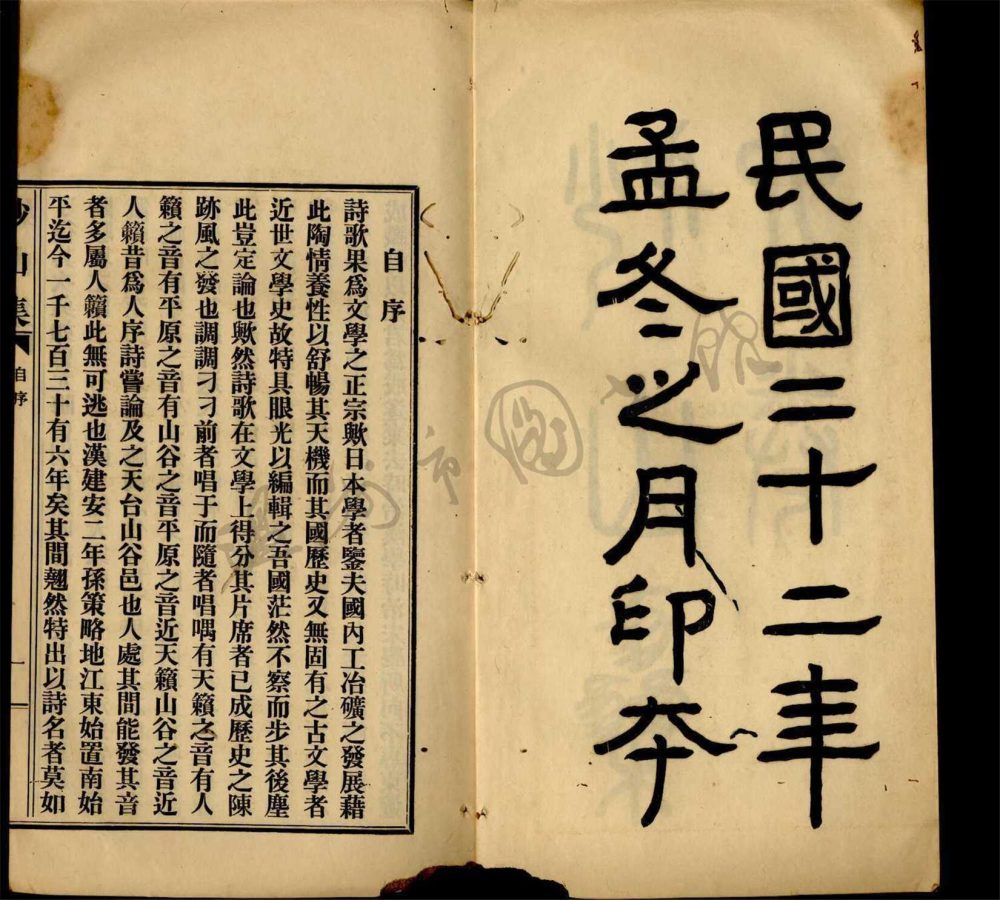 民國二十二年
孟冬之月印本
自序
詩歌果爲文學之正宗歟日本學者鑒夫國內工冶礦之發展藉
此陶情養性以舒暢其天機而其國歷史又無固有之古文學者
近世文學史故特具眼光以編輯之吾國茫然不察而步其後塵
此豈定論也歟然詩歌在文學上得分其片席者已成歷史之陳
跡風之發也調調刁刁前者唱于而隨者唱喁有天籟之音有人
籟之音有平原之音有山谷之音平原之音近天籟山谷之音近
人籟昔爲人序詩嘗論及之天台山谷邑也人處其間能發其音
者多屬人籟此無可逃也漢建安二年孫策略地江東始置南始
平迄今一千七百三十有六年矣其間翹然特出以詩名者莫如
山集
自序
一